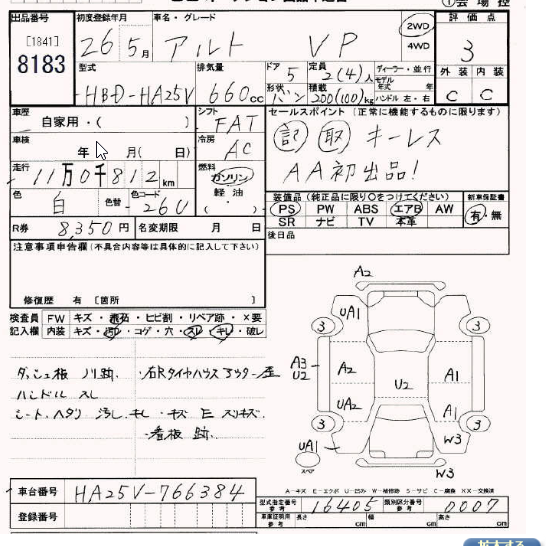 出品番号 初度登録年月 車名・グレード ①会場控
[1841] 26年5月 アルト VP 2WD 4WD 評価点 3
8183
型式 排気量 ドア 定員 ディーラー・並行
HBD-HA25V 660cc 5 2(4)人 モデル年式 年 外装 内装
形状 バン 積載 200(100)kg ハンドル 左・右 C C
車歴 シフト セールスポイント (正常に機能するものに限ります)
自家用・( ) FAT 記 取 キーレス
車検 冷房
年 月( 日) AC AA初出品!
走行 燃料
11万0千812km ガソリン
軽油
色 色替 色コード
白 26U ・( )
装備品(純正品に限り○をつけてください) 新車保証書
PS PW ABS エアB AW 有・無
SR ナビ TV 本革
R券 8,350円 名変期限 月 日 後日品
注意事項申告欄(不具合内容等は具体的に記入して下さい)
修復歴 有 [箇所 ]
検査員 FW キズ・飛石・ヒビ割・リペア跡・×要
記入欄 内装 キズ・汚れ・コゲ・穴・スレ・キレ・破レ
ダッシュ板 ノリ跡 ・右Rタイヤハウスアウター歪
ハンドル スレ
シート ヘタリ 汚レ キレ ・キズ E スリキズ
・看板跡
A2
UA1
3 3
A3 U2 A2 U2 A1
UA2 A1
3 3
UA1 W3
スペア
W3
A-キズ E-エクボ U-凹み W-補修跡 S-サビ C-腐食 XX-交換済
車台番号 HA25V-766384
型式指定番号 参考 16405 類別区分番号 参考 0007
登録番号
車庫証明用 参考 長さ cm 幅 cm 高さ cm
拡大する